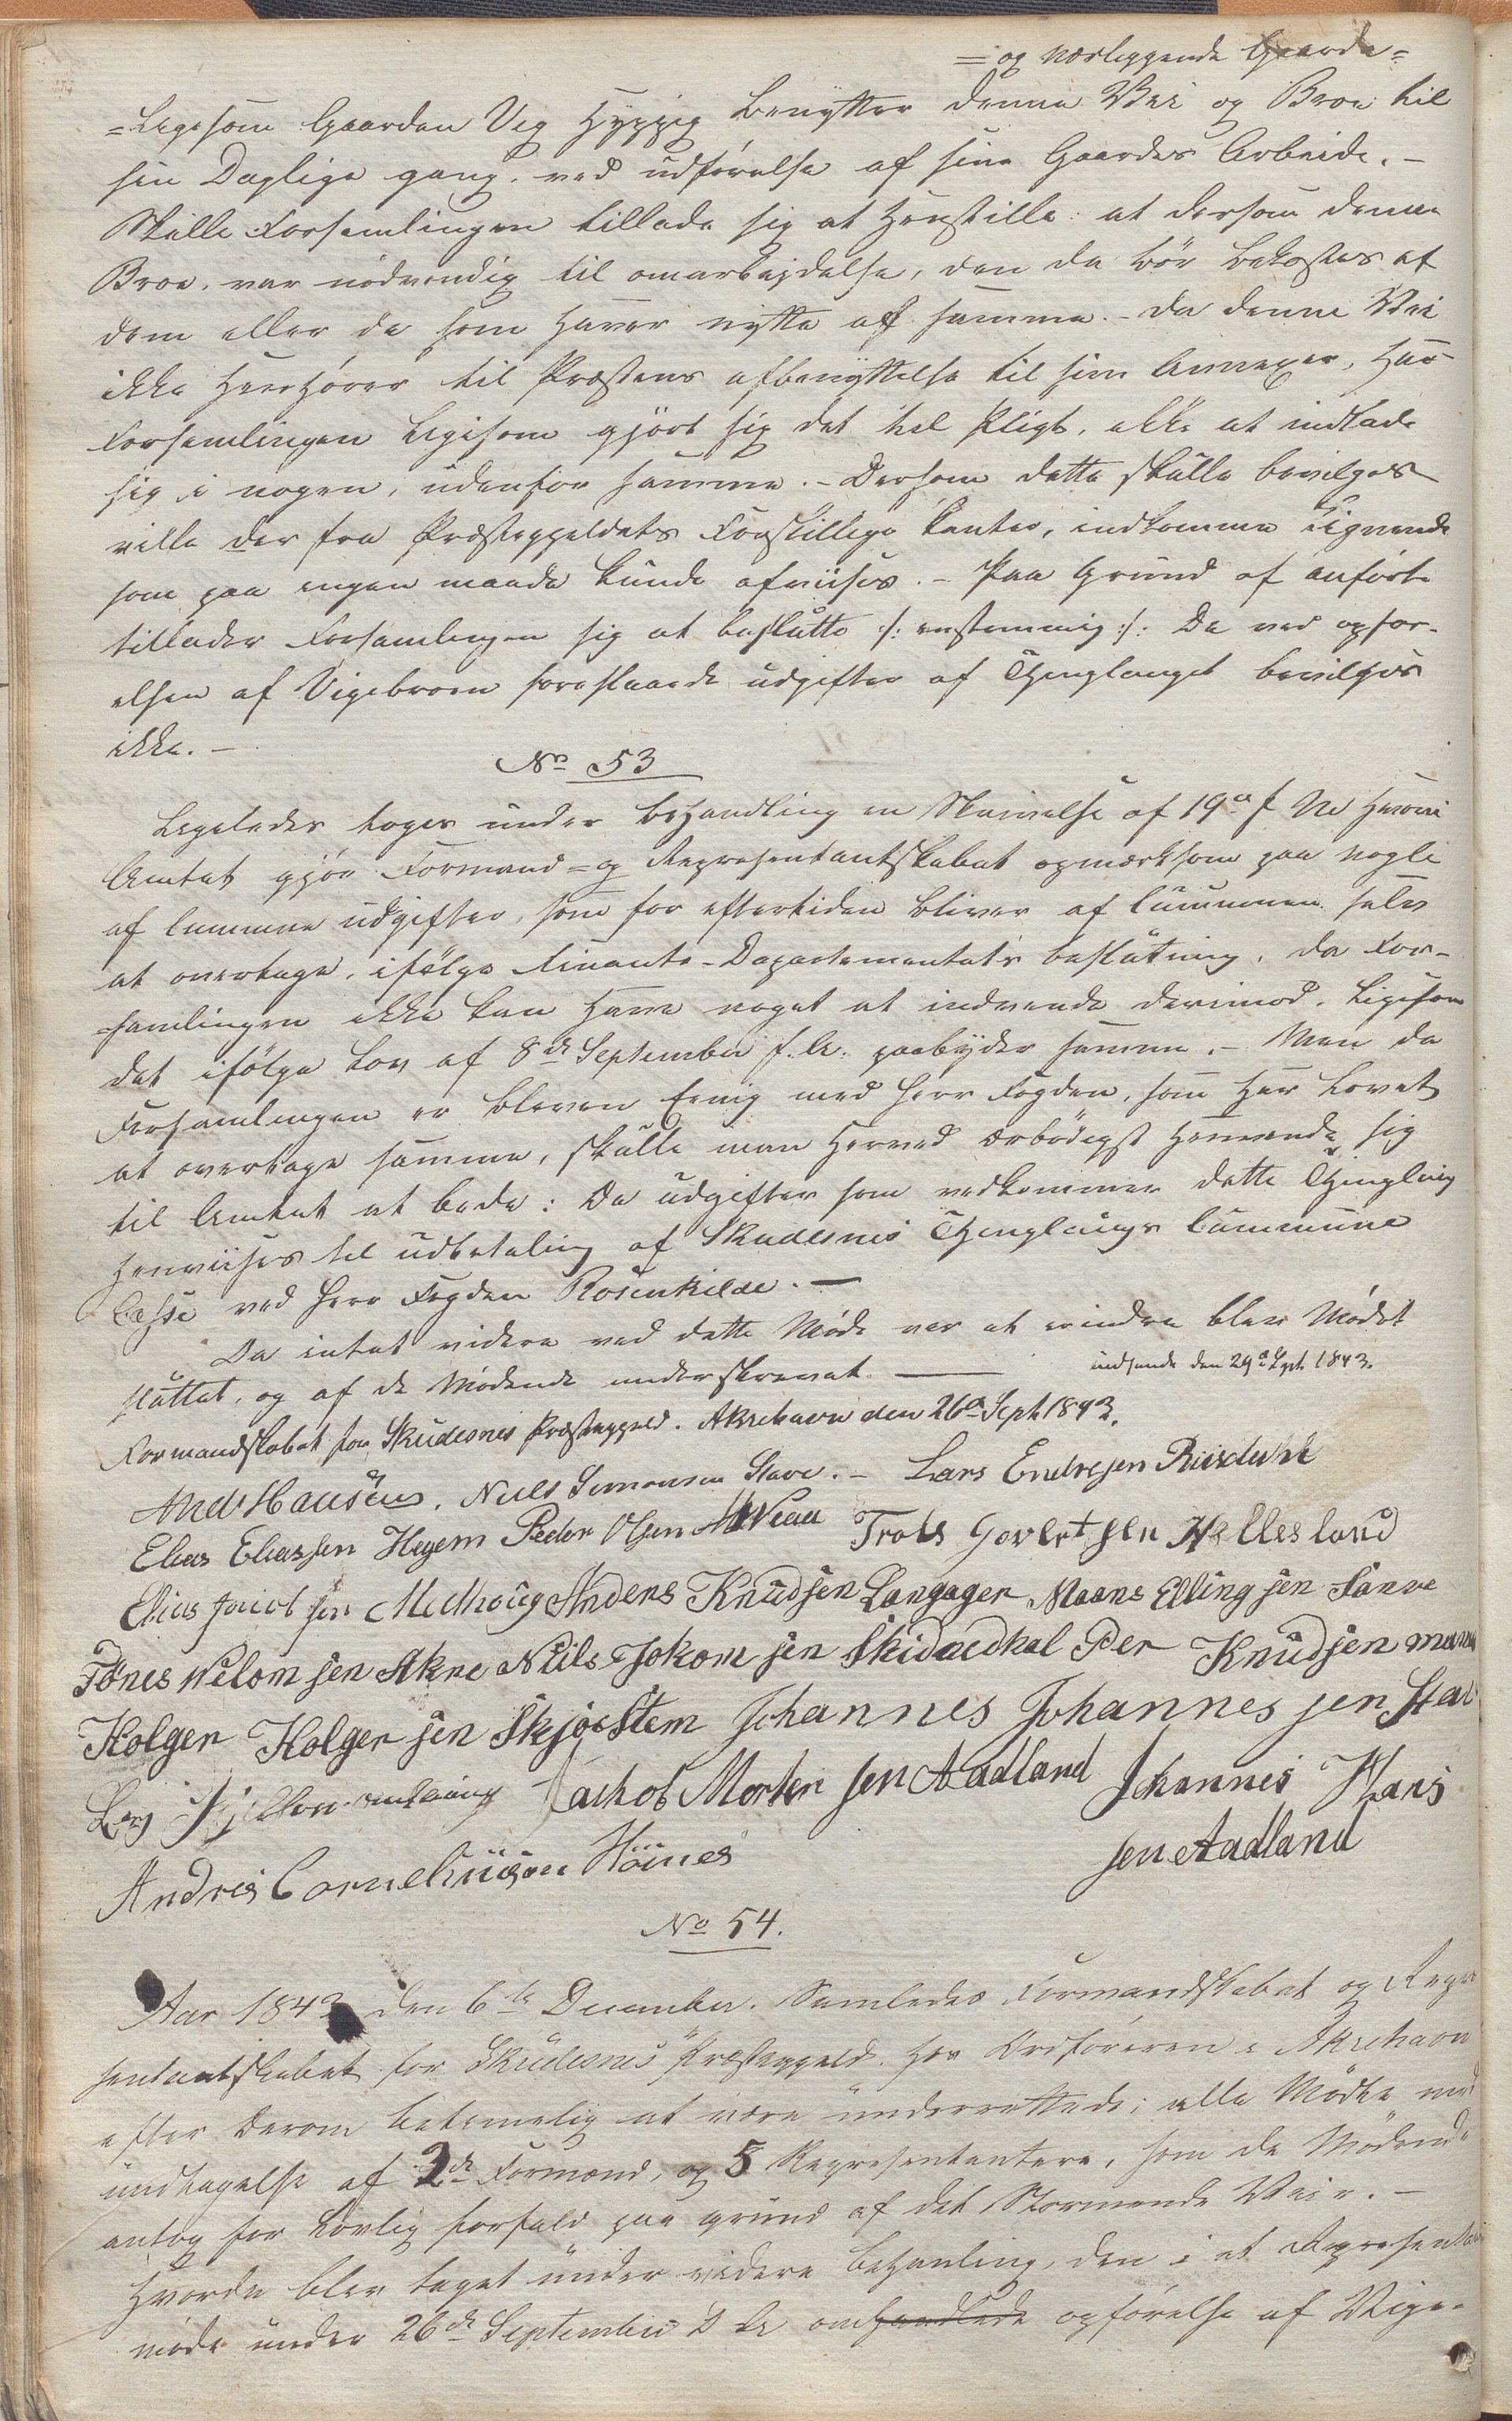 = og nærliggende Gaarde =
= Ligesom Gaarden Vig hyppig benytter denne Vei og Broe til
sin Daglige gang, ved udførelse af sine Gaardes Arbeide. -
Skulle Forsamlingen tillade sig at henstille: at dersom denne
Broe, var nødvendig til omarbejdelse, den da bør bekostes af
dem eller de som haver nytte af samme. - da denne Vei
ikke henhører til Præstens afbenyttelse til sine Annexer, har
Forsamlingen ligesom gjørt sig det til Pligt, ikke at indlade
sig i nogen, udenfor samme. - Dersom dette skulle bevilges
ville der fra Præstegjeldets Forskillige kanter, indkomme lignende
som paa ingen maade kunde afviises. - Paa Grund af anførte
tillader Forsamlingen sig at beslutte :/: enstemmig :/: De ved opfør-
elsen af Vigebroen foreslaaede udgifter af Thinglauget bevilges
ikke. -
No 53
Ligeledes toges under behandling en Skrivelse af 19de f. M. hvori
Amtet gjør Formand = og Repræsentantskabet opmærksom paa nogle
af Commune udgifter, som for eftertiden bliver af Communen selv
at overtage, ifølge Finants-Departementets beslutning, da For-
samlingen ikke kan have noget at indvende derimod, ligesom
det ifølge Lov af 8de September f. A. paabyder samme. - Men da
Forsamlingen er bleven Eenig med Herr Fogden, som har Lovet
at overtage samme, skulle man herved ærbødigst henvende sig
til Amtet at bede: De udgifter som vedkommer dette Thinglaug
henviises til udbetaling af Skudesnes Thinglaugs Commune
Casse ved Herr Fogden Rosenkilde. -
Da intet videre ved dette Møde var at erindre blev Mødet
sluttet, og af de Mødende underskrevet. - indsendt den 29de Sept. 1843.
Formandskabet for Skudesnes Præstegjeld. Akrehavn den 26de Sept 1843.
And. Hausen. Niels Simonsen Stave. - Lars Endresen Riisdahl
Elias Eliassen Hegem Peder Olsen Trols Govertsen Hellesland
Elias Jacobsen Medhoug Anders Knudsen Langager Maans Ellingsen Sanve
Tönes Wilomsen Akre Niils Jokomsen Skidaedkal Per Knudsen
Holger Holgersen Skjoestem Johannes Johannessen
Jackob Mortensen Aadland Johannes Hans
sen Aadland
Andris Corneliusen Höines
No 54.
Aar 1843 den 6te December. Samledes Formandskabet og Repræ
sentantskabet for Skudesnes Præstegjeld. hos Ordføreren i Akrehavn
efter derom betimelig at være underrettede; alle Mødte med
undtagelse af 2de Formænd, og 5 Repræsentantere, som de Mødende
antog for Lovlig forfald paa grund af det Stormende Veir. -
Hvorda blev taget under videre behanling, den i et Repræsentant
møde under 26de September d. A. omhandlede opførelse af Vige-